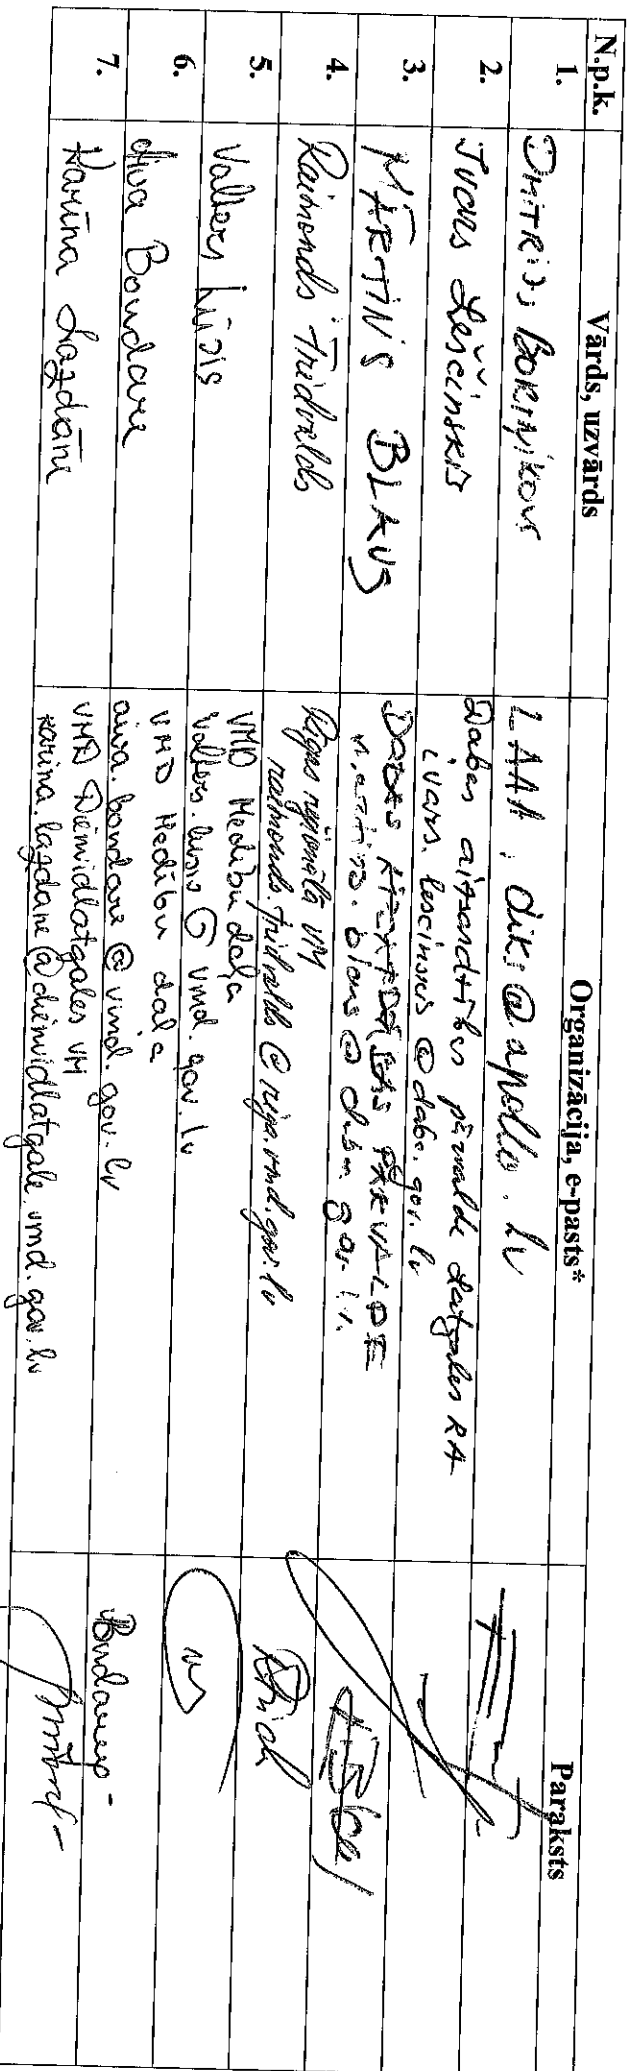 N.p.k. Vārds, uzvārds Organizācija, e-pasts* Paraksts
1. Dmitrijs LAAA, diki@apollo.lv
2. Ivars Leščinskis Dabas aizsardzības pārvalde Latgales RA
ivars.lescinskis@daba.gov.lv
3. MĀRTIŅŠ BLAUS DABAS AIZSARDZĪBAS PĀRVALDE
4. Raimonds Fridvalds Rīgas reģionālā VM
raimonds.fridvalds@riga.vmd.gov.lv
5. Valters Lūsis VMD Medību daļa
valters.lusis@vmd.gov.lv
6. Aiva Bondare VMD Medību daļa
aiva.bondare@vmd.gov.lv
7. Karīna Lazdāne VMD Dienvidlatgales VM
karina.lazdane@dienvidlatgale.vmd.gov.lv